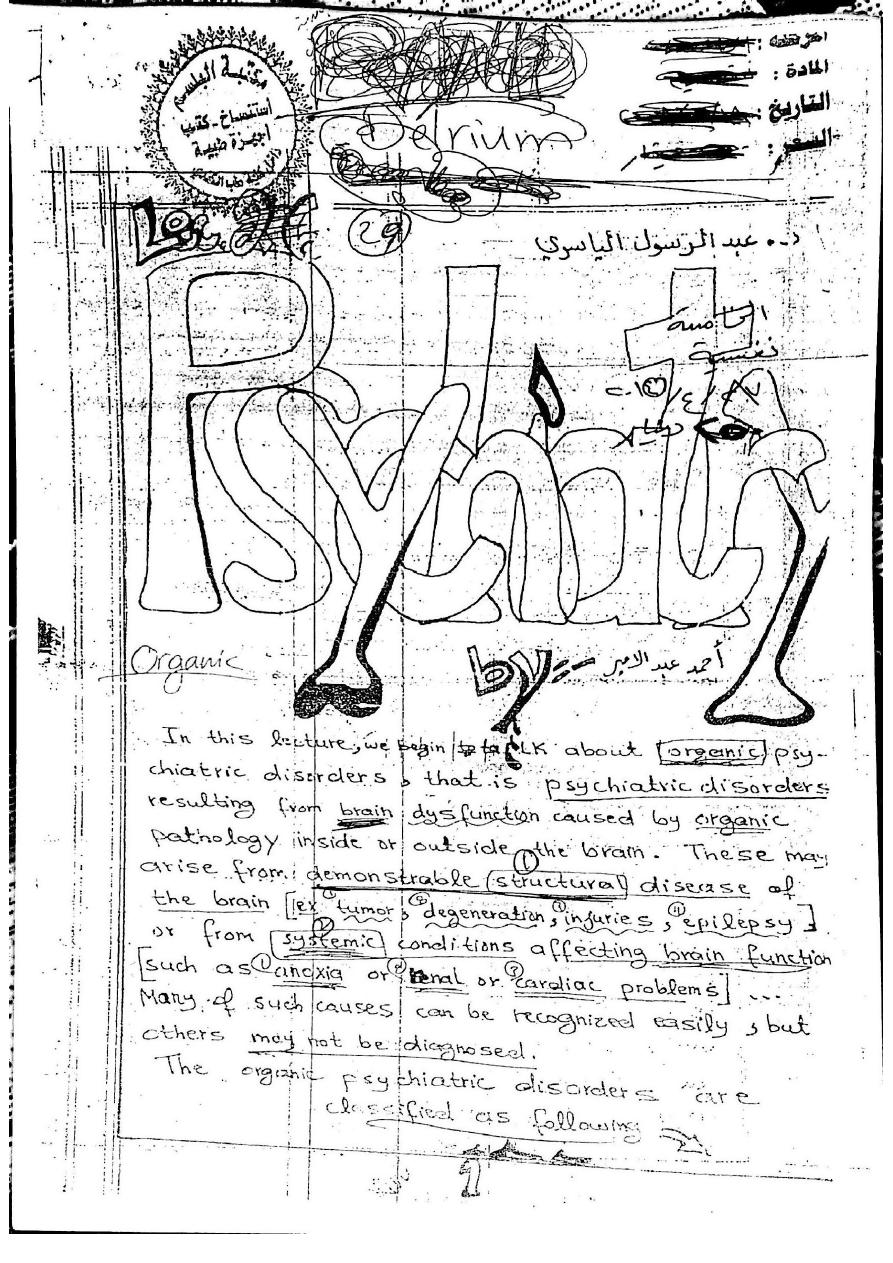 مكتبة البلسم
استنساخ - كتب
اجهزة طبية
Delrium
المادة :
التاريخ :
السعر :
29
د. عبد الرسول الياسري
Psychiatry
الخامسة
نفسية
Organic
by :- أحمد عبد الامير
In this lecture, we begin to talk about organic psy-
chiatric disorders, that is psychiatric disorders
resulting from brain dysfunction caused by organic
pathology inside or outside the brain. These may
arise from demonstrable ① structural disease of
the brain [ex ① tumor, ② degeneration, ③ injuries, ④ epilepsy]
or from ② systemic conditions affecting brain function
[such as ① anoxia or ② renal or ③ cardiac problems] ...
Many of such causes can be recognized easily, but
others may not be diagnosed.
The organic psychiatric disorders are
classified as following
1